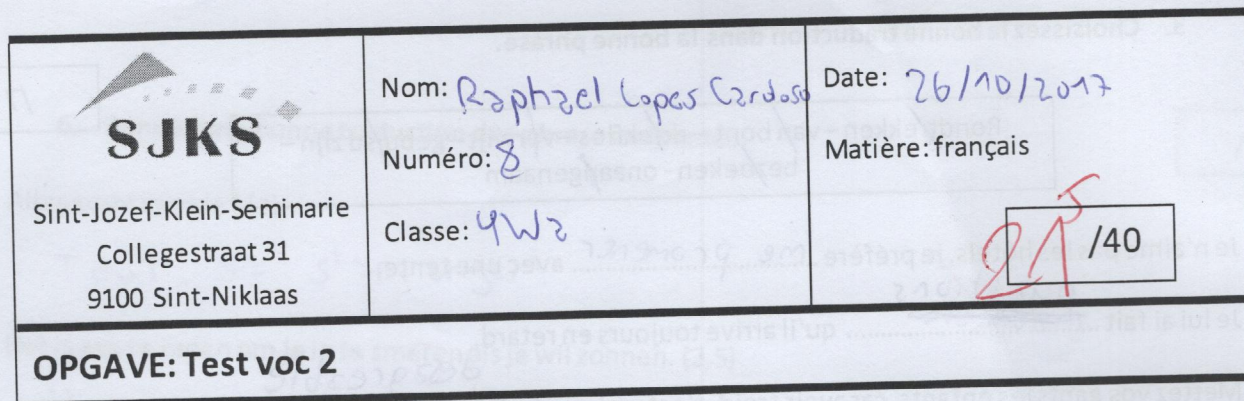 SJKS
Sint-Jozef-Klein-Seminarie
Collegestraat 31
9100 Sint-Niklaas
Nom: Raphael Lopes Cardoso
Numéro: 8
Classe: 4W2
Date: 26/10/2017
Matière: français
21,5 /40
OPGAVE: Test voc 2